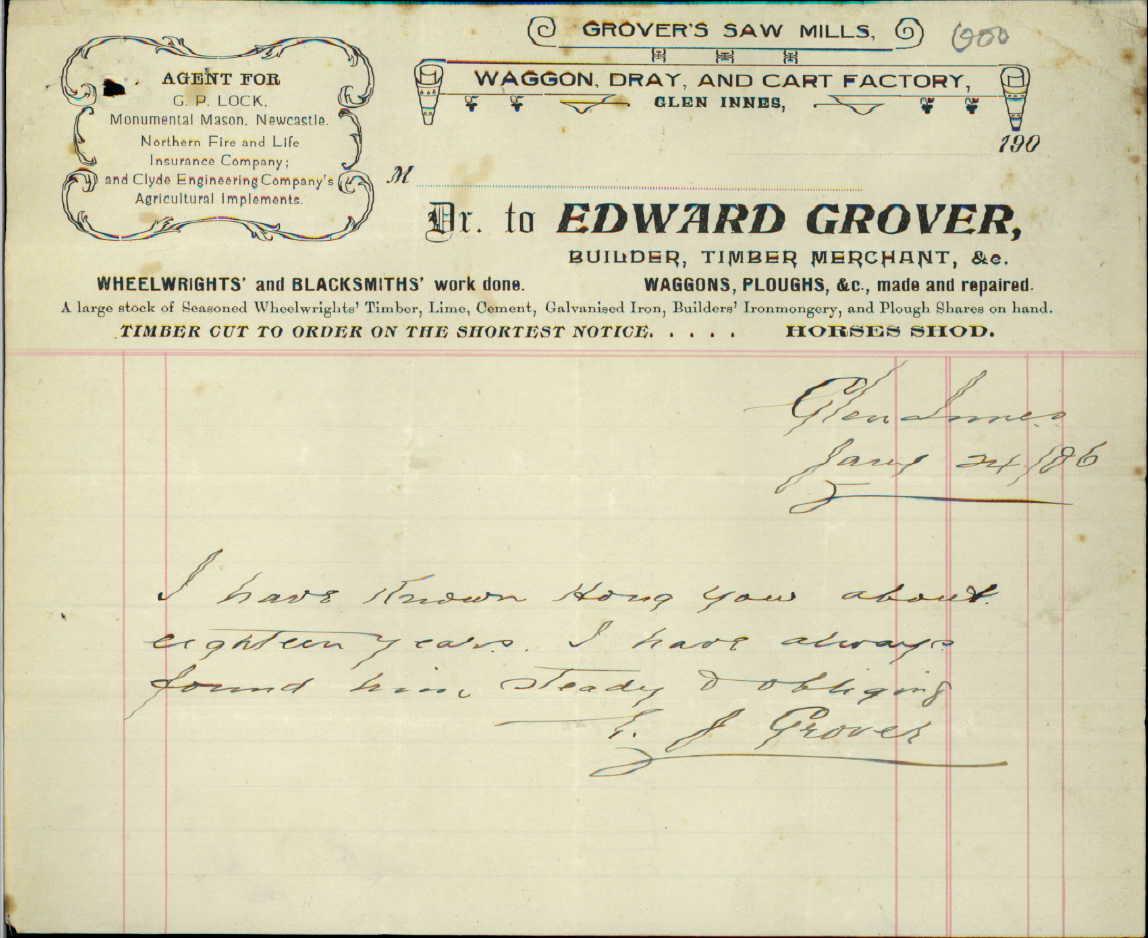 GROVER'S SAW MILLS,
WAGGON, DRAY, AND CART FACTORY,
GLEN INNES,
190
AGENT FOR
G. P. LOCK,
Monumental Mason, Newcastle.
Northern Fire and Life
Insurance Company;
and Clyde Engineering Company's
Agricultural Implements.
M
Dr. to EDWARD GROVER,
BUILDER, TIMBER MERCHANT, &c.
WHEELWRIGHTS' and BLACKSMITHS' work done. WAGGONS, PLOUGHS, &c., made and repaired.
A large stock of Seasoned Wheelwrights' Timber, Lime, Cement, Galvanised Iron, Builders' Ironmongery, and Plough Shares on hand.
TIMBER CUT TO ORDER ON THE SHORTEST NOTICE. . . . . HORSES SHOD.
Glen Innes
Jany 24/06
I have Known Hong Yow about
eighteen years. I have always
found him steady & obliging
E. J Grover